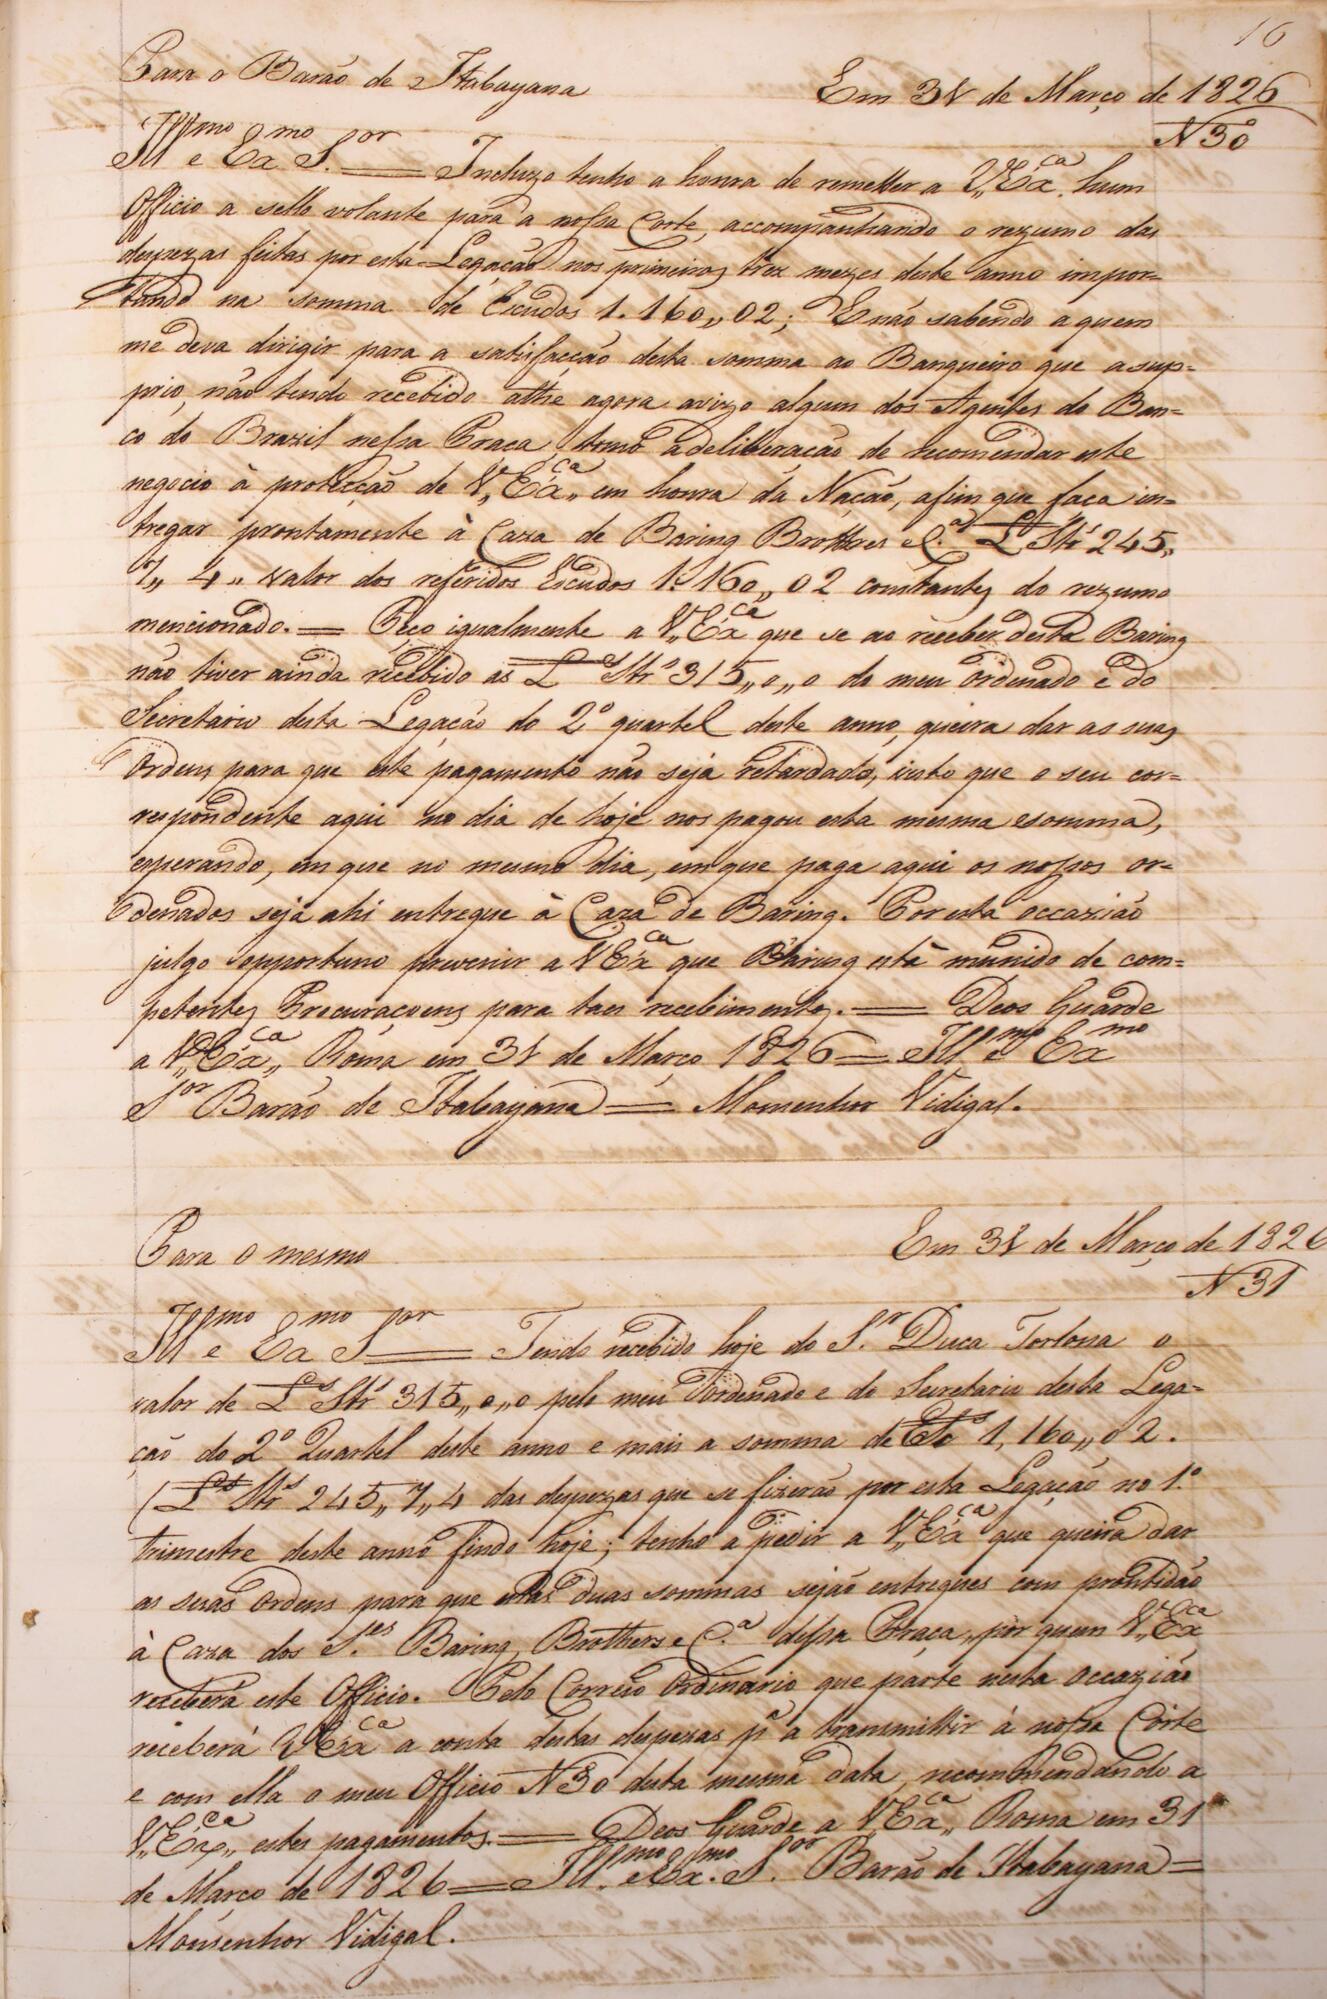 16
Para o Barão de Itabayana Em 31 de Março de 1826
N 30
Ill^mo e Ex^mo S.^or = Incluzo tenho a honra de remetter a V,,Ex^ca. hum
Officio a sello volante para a nossa Corte, accompanhando o rezumo das
despezas feitas por esta Legação nos primeiros trez mezes deste anno impor-
tando na somma de Escudos 1.160,,02; E não sabendo a quem
me deva dirigir para a satisfacção desta somma ao Banqueiro que a sup-
prio, não tendo recebido athe agora avizo algum dos Agentes do Ban-
co do Brazil nessa Praça, tomo a deliberação de recomendar este
negocio à protecção de V,,Ex^ca,, em honra da Nação, afim que faça in-
tregar prontamente à Caza de Baring Brothres C.^a L^s Str^s 245,,
7,, 4,, valor dos referidos Escudos 1.160,,02 constantes do rezumo
mencionado. = Peço igualmente a V,,Ex^ca que se ao receber desta Baring
não tiver ainda recebido as L^s Str^s 315,,0,,0 do meu Ordenado e do
Secretario desta Legação do 2º quartel deste anno, queira dar as suas
Ordens para que este pagamento não seja retardado, visto que o seu cor-
respondente aqui no dia de hoje nos pagou esta mesma esomma,
esperando, em que no mesmo dia, em que paga aqui os nossos or-
denados seja ahi entregue à Caza de Baring. Por esta occazião
julgo opportuno prevenir a V,Ex^ca que Baring està munido de com-
petentes Procuraçoens para taes recebimentos. = Deos Guarde
a V,,Ex^ca,, Roma em 31 de Março 1826 = Ill^mo e Ex^mo
S^or Barão de Itabayana = Monsenhor Vidigal.
Para o mesmo Em 31 de Março de 1826
N 31
Ill^mo e Ex^mo S^or = Tendo recebido hoje do S.^r Duca Torlona o
valor de L^s Str^s 315,,0,,0 pelo meu Ordenado e do Secretario desta Lega-
ção do 2º Quartel deste anno e mais a somma de Es^os 1,160,,02.
(L^s Str^s 245,,7,,4 das despezas que se fizerão por esta Legação no 1.º
trimestre deste anno findo hoje; tenho a pedir a V,,Ex^ca que queira dar
as suas Ordens para que estas duas sommas sejão entregues com prontidão
à Caza dos S.^res Baring, Brothers e C.^a dessa Praça, por quem V,,Ex^ca
receberá este Officio. Pelo Correio Ordinario que parte nesta occazião
receberá V,Ex^ca a conta destas despezas p^a a transmittir à nossa Côrte
e com ella o meu Officio N 30 desta mesma data, recommendando a
V,,Ex^ca,, estes pagamentos. = Deos Guarde a V,,Ex^ca,, Roma em 31
de Março de 1826 = Ill.^mo e Ex.^mo S.^or Barão de Itabayana =
Monsenhor Vidigal.